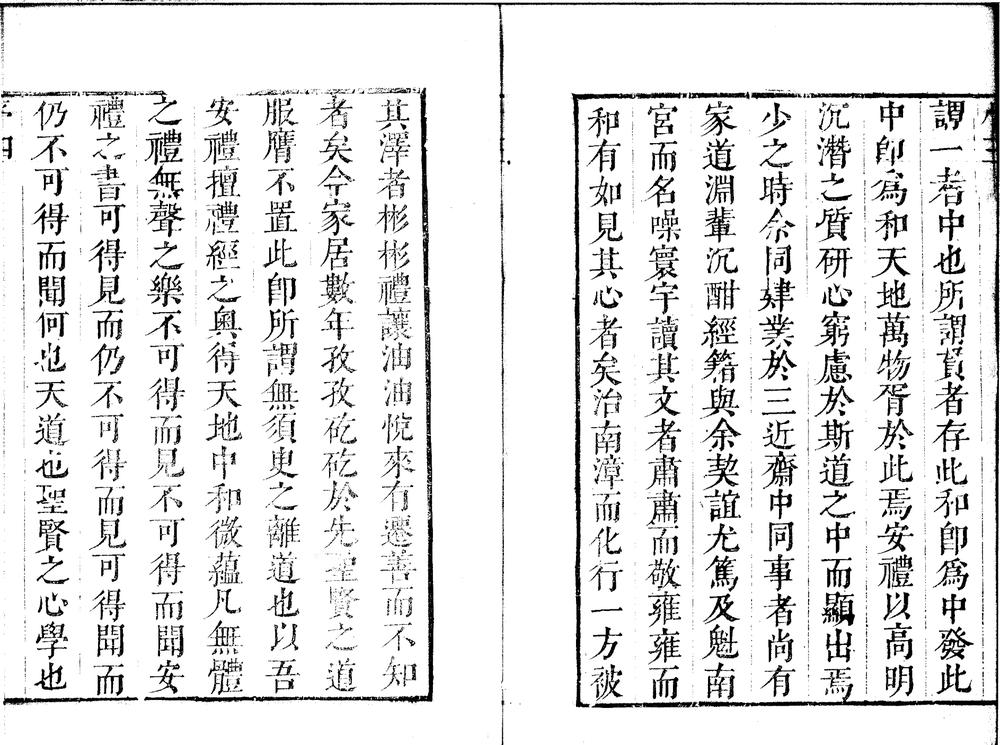 謂一者中也所謂貫者存此和卽爲中發此
中卽爲和天地萬物胥於此焉安禮以高明
沉潛之質研心窮慮於斯道之中而顯出焉
少之時余同肄業於三近齋中同事者尚有
家道淵輩沉酣經籍與余契誼尤篤及魁南
宮而名噪寰宇讀其文者肅肅而敬雍雍而
和有如見其心者矣治南漳而化行一方被
其澤者彬彬禮讓油油悅來有遷善而不知
者矣今家居數年孜孜矻矻於先聖賢之道
服膺不置此卽所謂無須臾之離道也以吾
安禮擅禮經之奥得天地中和微蘊凡無體
之禮無聲之樂不可得而見不可得而聞安
禮之書可得見而仍不可得而見可得聞而
仍不可得而聞何也天道也聖賢之心學也